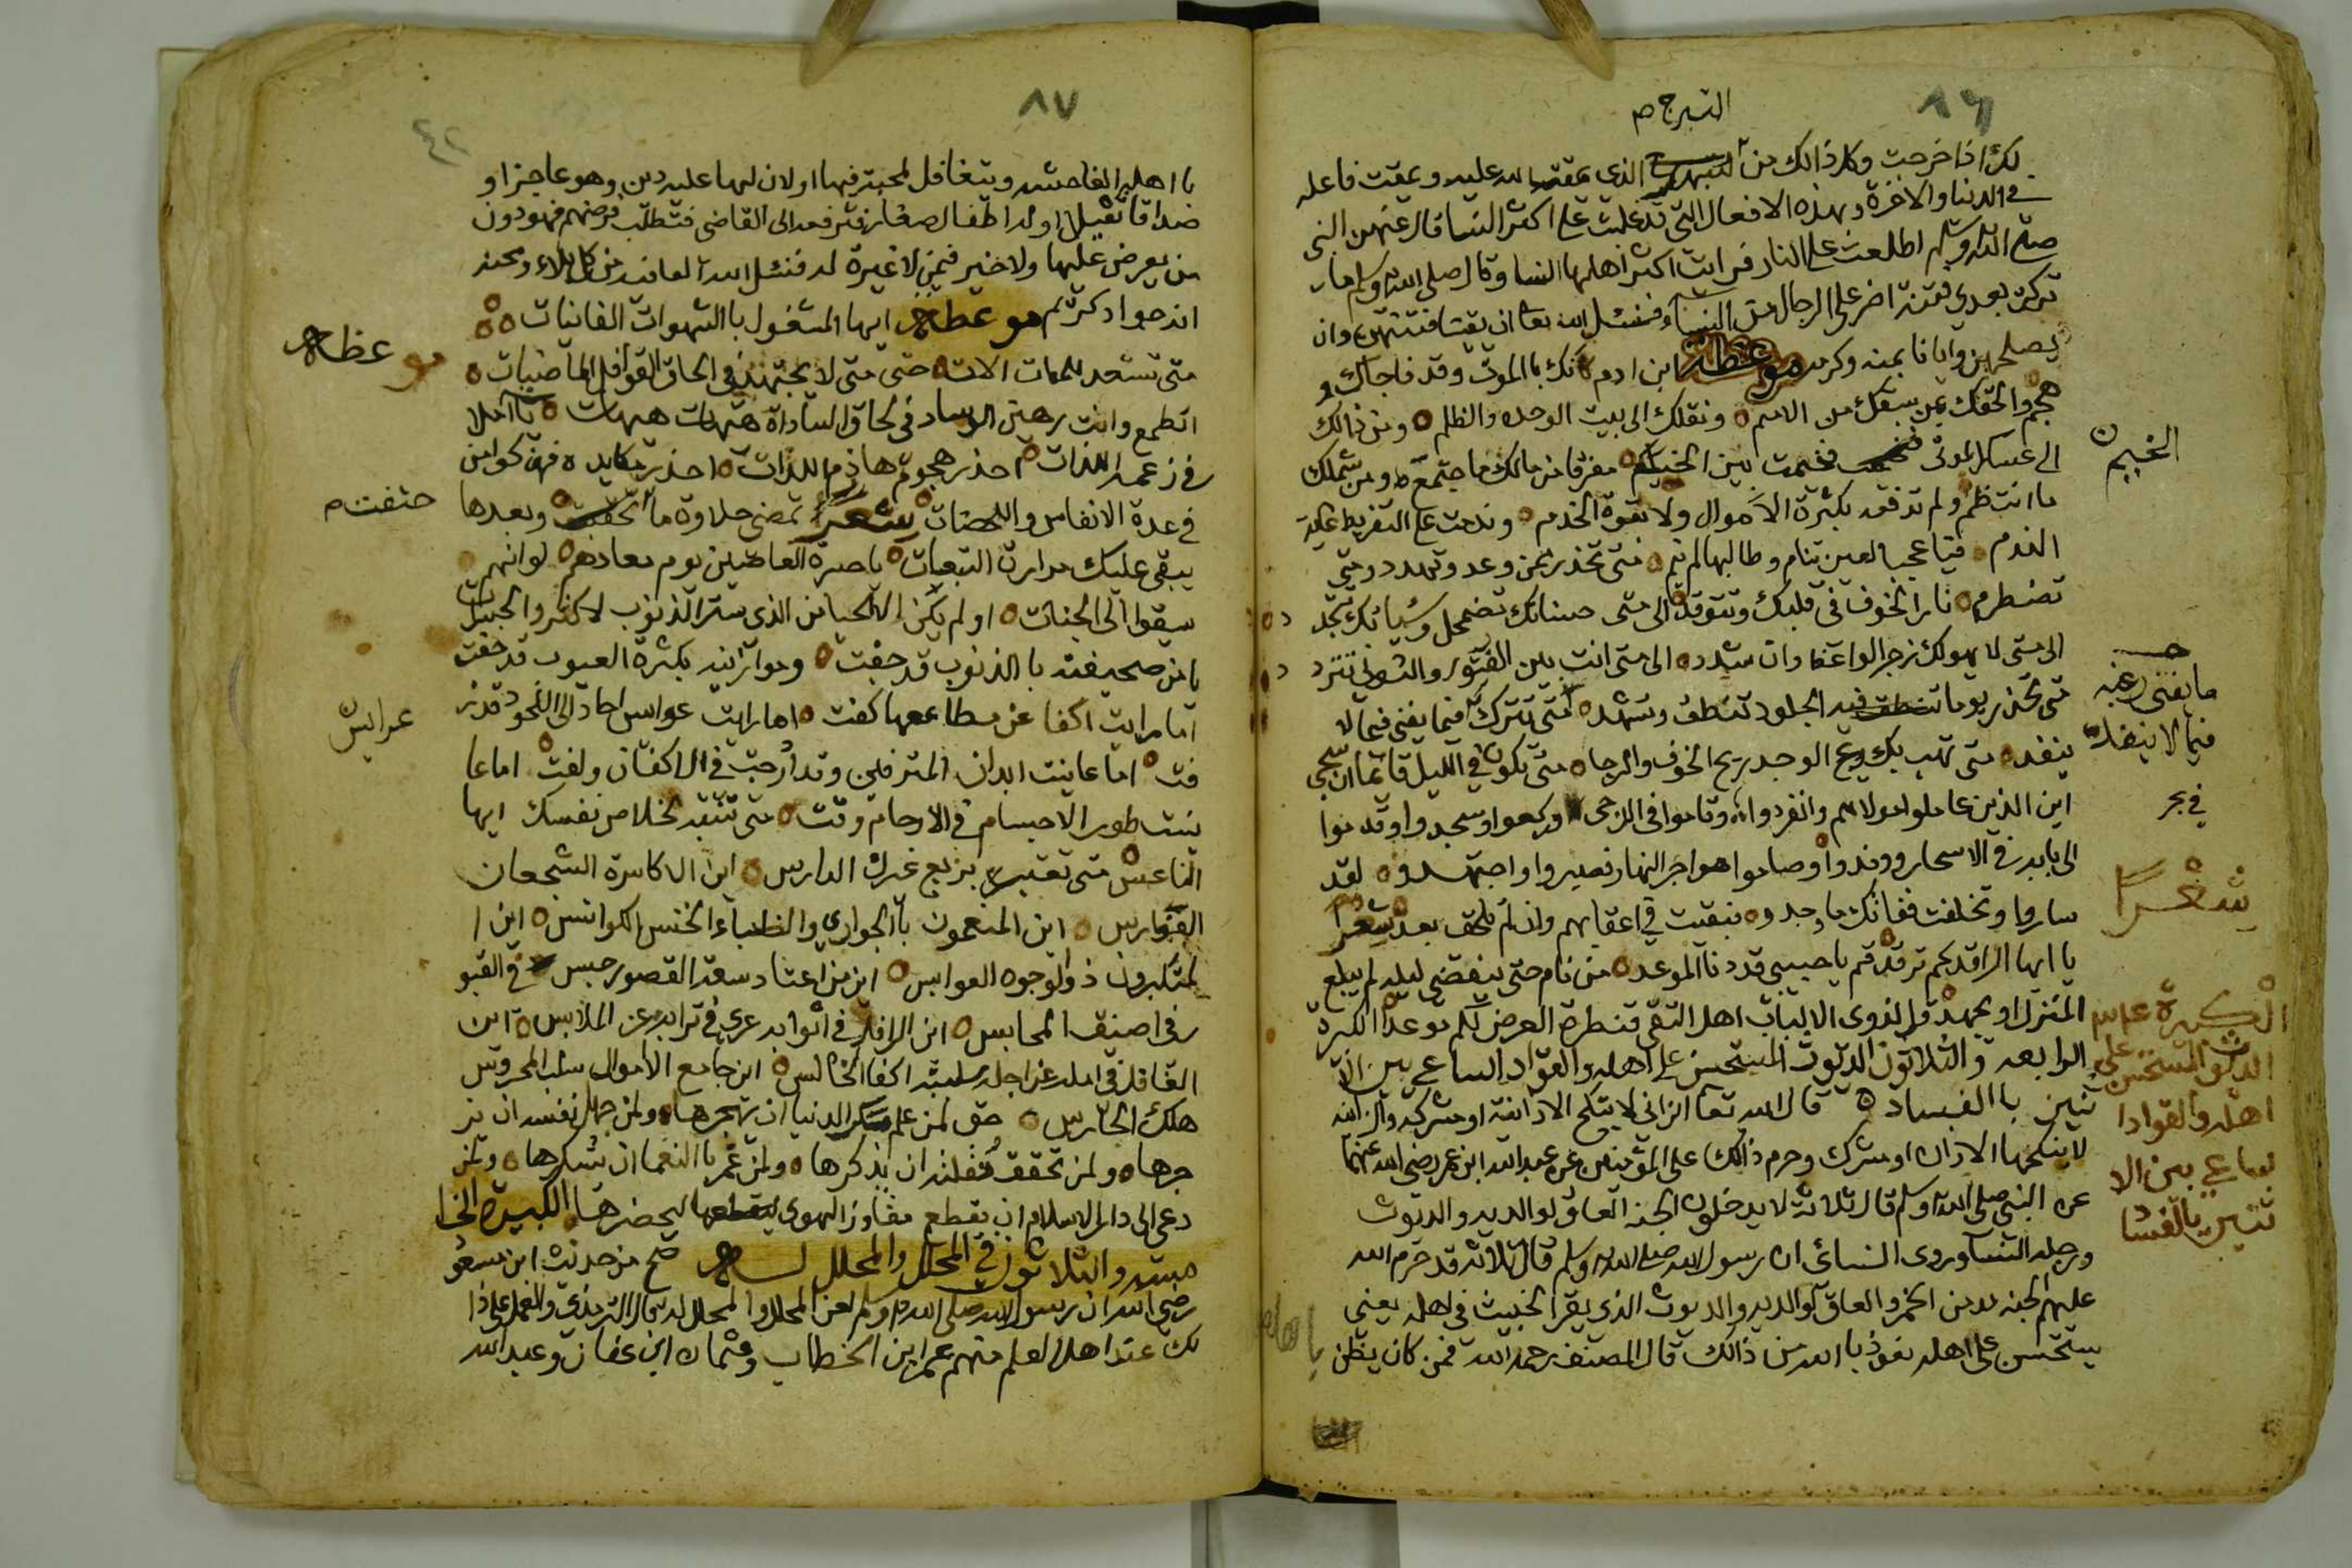 ٨٦
التبرج م
لك اذا خرجت وكل ذالك من التبرج الذي يمقت الله عليه ويمقت فاعله
في الدنيا والاخرة وبهذه الافعال التي قد غلبت على اكثر النسا قال عنهن النبي
صلى الله وسلم اطلعت على النار فرايت اكثر اهلها النسا وقال صلى الله وسلم ما
تركت بعدي فتنة اضر على الرجال من النساء فنسئل الله تعا ان يقينا فتنتهن وان
يصلحهن وايانا بمنه وكرمه موعظة ابن ادم كانك بالموت وقد فاجاك و
هجم والحقك بمن سبقك من الامم ونقلك الى بيت الوحده والظلم ومن ذالك
الى عسكر الموتى فخيمت بين الخيم مفرقا من مالك ما اجتمع ومن شملك
الخييم ن
ما انتظم ولم تدفعه بكثرة الاموال ولا بقوة الخدم وندمت على التفريط غاية
الندم فيا عجبا لعين تنام وطالبها لم ينم متى تحذر ممن وعد وتهدد ومتى
تضطرم نار الخوف في قلبك وتتوقد الى متى حسناتك تضمحل وسياتك تجدد
الى متى لا يهولك زجر الواعظ وان شدد الى متى انت بين الفتور والتواني تتردد
متى تحذر يوما فيه الجلود تنطق وتشهد متى تترك فيما يفنى فيما لا
ما يفنى رغبه
فيما لا ينفد
ينفد متى تهب بك ريح الوجد ريح الخوف والرجا متى تكون في الليل قائما اذا سجي
في بحر
اين الذين عاملوا مولاهم وانفردوا وقاموا في الدجى وركعوا وسجدوا وقدموا
الى بابه في الاسحار ووفدوا وصاموا هواجر النهار فصبروا واجتهدوا لقد
ساروا وتخلفت ففاتك ما وجدوا وبقيت في اعقابهم وان لم تلحق بعد شعر
شعرا
يا ايها الراقد كم ترقد قم يا حبيبي قد دنا الموعد من نام حتى ينقضي ليله لم يبلغ
المنزل او يجهد قل لذوي الالباب اهل التقى قنطرة العرض لكم موعد الكبرة
الرابعه والثلاثون الديوث المستحسن على اهله والقواد الساعي بين الاثـ
نين با الفساد قال الله تعا الزاني لا ينكح الا زانية او مشركة والزانيه
لا ينكحها الا زان او مشرك وحرم ذالك على المؤمنين عن عبد الله ابن عمر رضي الله عنهما
الكبرة
الديوث المستحسن على
اهله والقوادا
لساعي بين الا
ثنين بالفسا
عن النبي صلى الله وسلم قال ثلاثة لا يدخلون الجنه العاق لوالديه والديوث
ورجلة النسا وروى النسائي ان رسول الله صلى الله وسلم قال ثلاثة قد حرم الله
عليهم الجنه مدمن الخمر والعاق لوالديه والديوث الذي يقر الخبيث في اهله يعني
يستحسن على اهله نعوذ با الله من ذالك قال المصنف رحمه الله فمن كان يظن
با اهله
٨٧
٤٢
با اهله الفاحشه ويتغافل لمحبته فيها او لان لها عليه دين وهو عاجز او
صداقا ثقيلا او له اطفال صغار فترفعه الى القاضي فتطلب فرضهم فهو دون
من يعرض عليها ولا خير فيمن لا غيرة له فنسئل الله العافيه من كل بلاء ومحنه
انه جواد كريم موعظه ايها المشغول با الشهوات الفانيات
موعظه
متى تستعد للممات الات حتى متى لا تجتهد في الحاق القوافل الماضيات
اتطمع وانت رهين الوساد في لحاق السادات هيهات هيهات يا املا
في زعمه اللذات احذر هجوم هاذم اللذات احذر مكايده فهي كوامن
في عدة الانفاس واللحضات شعر تمضي حلاوة ما اخفيت وبعدها
ختفت م
يبقى عليك مرارة التبعات يا حسرة العاصين يوم معادهم لو انهم
سيقوا الى الجنات او لم يكن الا الحيا من الذي ستر الذنوب لاكثروا الحسرات
يا من صحيفته با الذنوب قد حفت وموازينه بكثرة العيوب قد خفت
اما رايت اكفا عن مطامعها كفت اما رايت عوايس احاد الى اللحود قد ز
عرايس
فت اما عاينت ابدان المترفين وقد ادرجت في الاكفان ولفت اما عا
ينت طور الاجسام في الارحام وقت متى تنتبه لخلاص نفسك ايها
الناعس متى تعتبر بربع غيرك الدارس اين الاكاسرة الشجعان
الفوارس اين المنعمون با الجواري والظباء الخنس الكوانس اين ا
لمتكبرون ذوالوجوه العوابس اين من اعتاد سعة القصور حبس في القبو
ر في اضيق المحابس اين الرافل في اثوابه عري في ترابه عن الملابس اين
الغافل في امله عن اجله سلبته اكف الخالس اين جامع الاموال سلب المحروس
هلك الحارس حق لمن علم مكر الدنيا ان يهجرها ولمن جهل نفسه ان يز
جرها ولمن تحقق نقلته ان يذكرها ولمن غمر با النعما ان يشكرها ولمن
دعي الى دار السلام ان يقطع مفاوز الهوى ليحضرها الكبيرة الخا
مسه والثلاثون في المحلل والمحلل له صح من حديث ابن مسعو
رضي الله ان رسول الله صلى الله وسلم لعن المحلل والمحلل له قال الترمذي والعمل على ذا
لك عند اهل العلم منهم عمر ابن الخطاب وعثمان ابن عفان وعبد الله